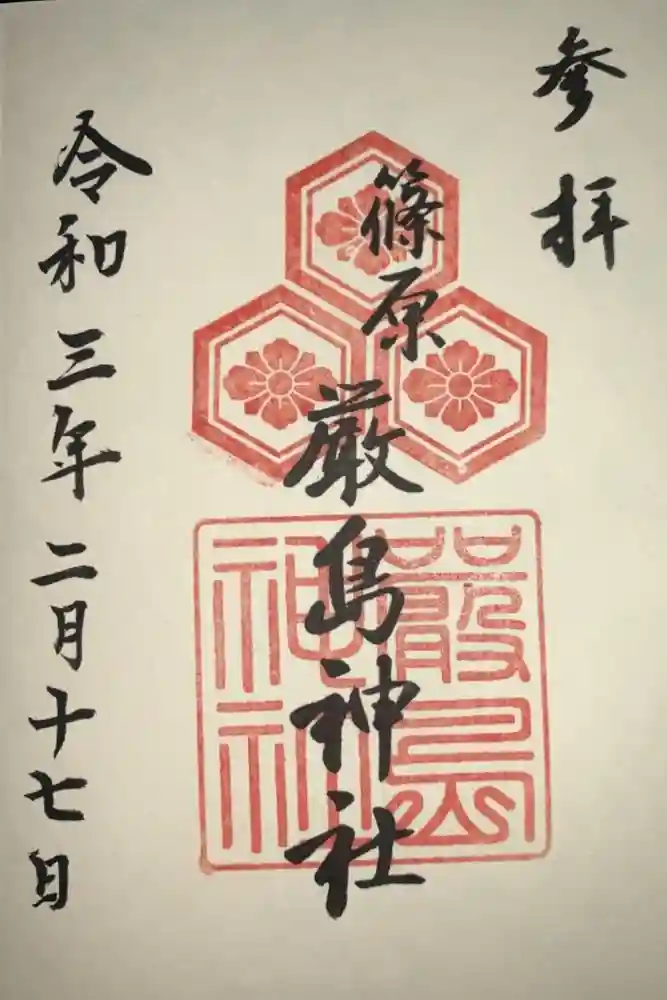 参拝
篠原
厳島神社
嚴島
神社
令和三年二月十七日